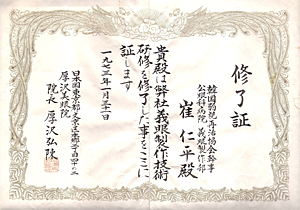 修了証
韓国弱視再活協会幹事
公眼科病院 義眼製作部
崔 仁平殿
貴殿は弊社義眼製作技術
研修を修了した事をここに
証します
一九七三年一月三十一日
日本国東京都文京区本郷
厚沢義眼院
院長 厚沢弘陳